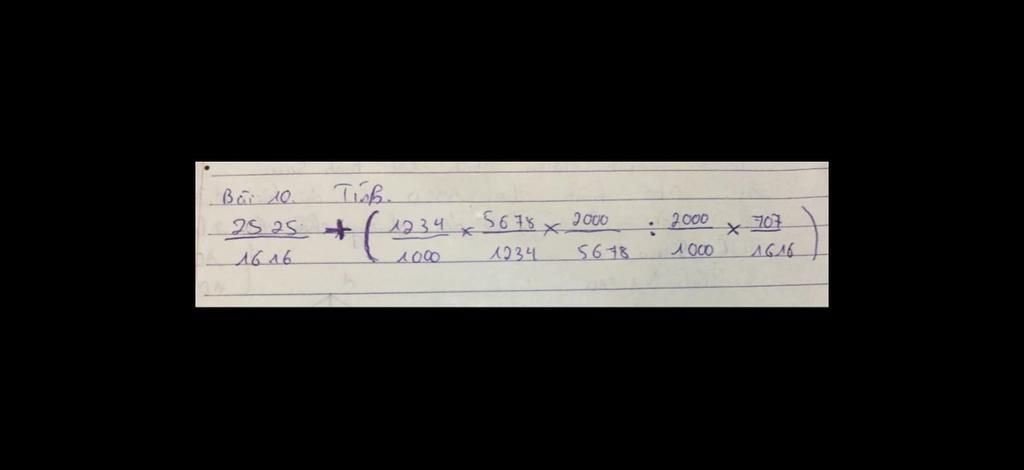 Bài 10. Tính.
2525/1616 + (1234/1000 × 5678/1234 × 2000/5678 : 2000/1000 × 707/1616)